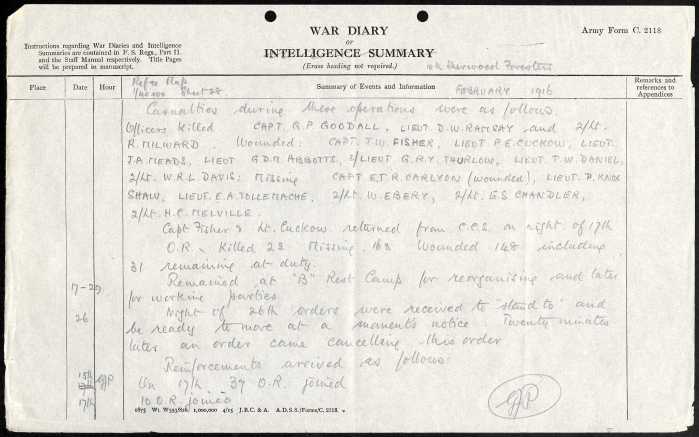 WAR DIARY
or
INTELLIGENCE SUMMARY
(Erase heading not required.)
Army Form C. 2118
Instructions regarding War Diaries and Intelligence
Summaries are contained in F. S. Regs., Part II.
and the Staff Manual respectively. Title Pages
will be prepared in manuscript.
10th Sherwood Foresters
Place
Date
Hour
Refce Map
1/40,000 Sheet 28
Summary of Events and Information
FEBRUARY 1916
Remarks and
references to
Appendices
Casualties during these operations were as follows.
Officers Killed CAPT. G.P GOODALL, LIEUT. D.W. RAMSAY and 2/Lt.
R. MILWARD. Wounded: CAPT. J.W. FISHER, LIEUT P.E. CUCKOW, LIEUT.
J.A. MEADS, LIEUT G.D.M. ABBOTTS, 2/LIEUT G.R.Y. THURLOW, LIEUT T.W. DANIEL,
2/Lt. W.R.L. DAVIS: Missing CAPT E.T.R. CARLYON (wounded), LIEUT. P. KNOX
SHAW, LIEUT. E.A. TOLLEMACHE, 2/Lt. W. EBERY, 2/Lt. G.S CHANDLER,
2/Lt. H.C. MELVILLE.
Capt Fisher & Lt. Cuckow returned from C.C.S. on night of 17th
O.R. Killed 28 Missing 163 Wounded 148 including
31 remaining at duty.
17-29
Remained at "B" Rest Camp for reorganising and later
for working parties
26
Night of 26th orders were received to "stand to" and
be ready to move at a moments notice. Twenty minutes
later an order came cancelling this order
Reinforcements arrived as follows:
15th
On 17th 37 O.R. joined
17th
10 O.R. joined
2875 Wt. W593/826 1,000,000 4/15 J.B.C. & A. A.D.S.S./Forms/C. 2118.